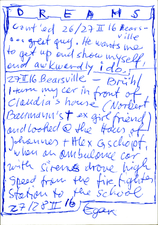 DREAMS
cont'ed 26/27 II 16 Bears-
great guy. He wants me
to get up and show myself
and awkwardly I do.
27 II 16 Bearsville - Brühl
I turn my car in front of
Claudia's house (Norbert
Beermann's ex girl friend)
and looked @ the token of
Johannes + Alex Gschopf,
when an ambulance car
with sirens drove high
speed from the fire fighter
station to the school
27/28 II 16 Egon